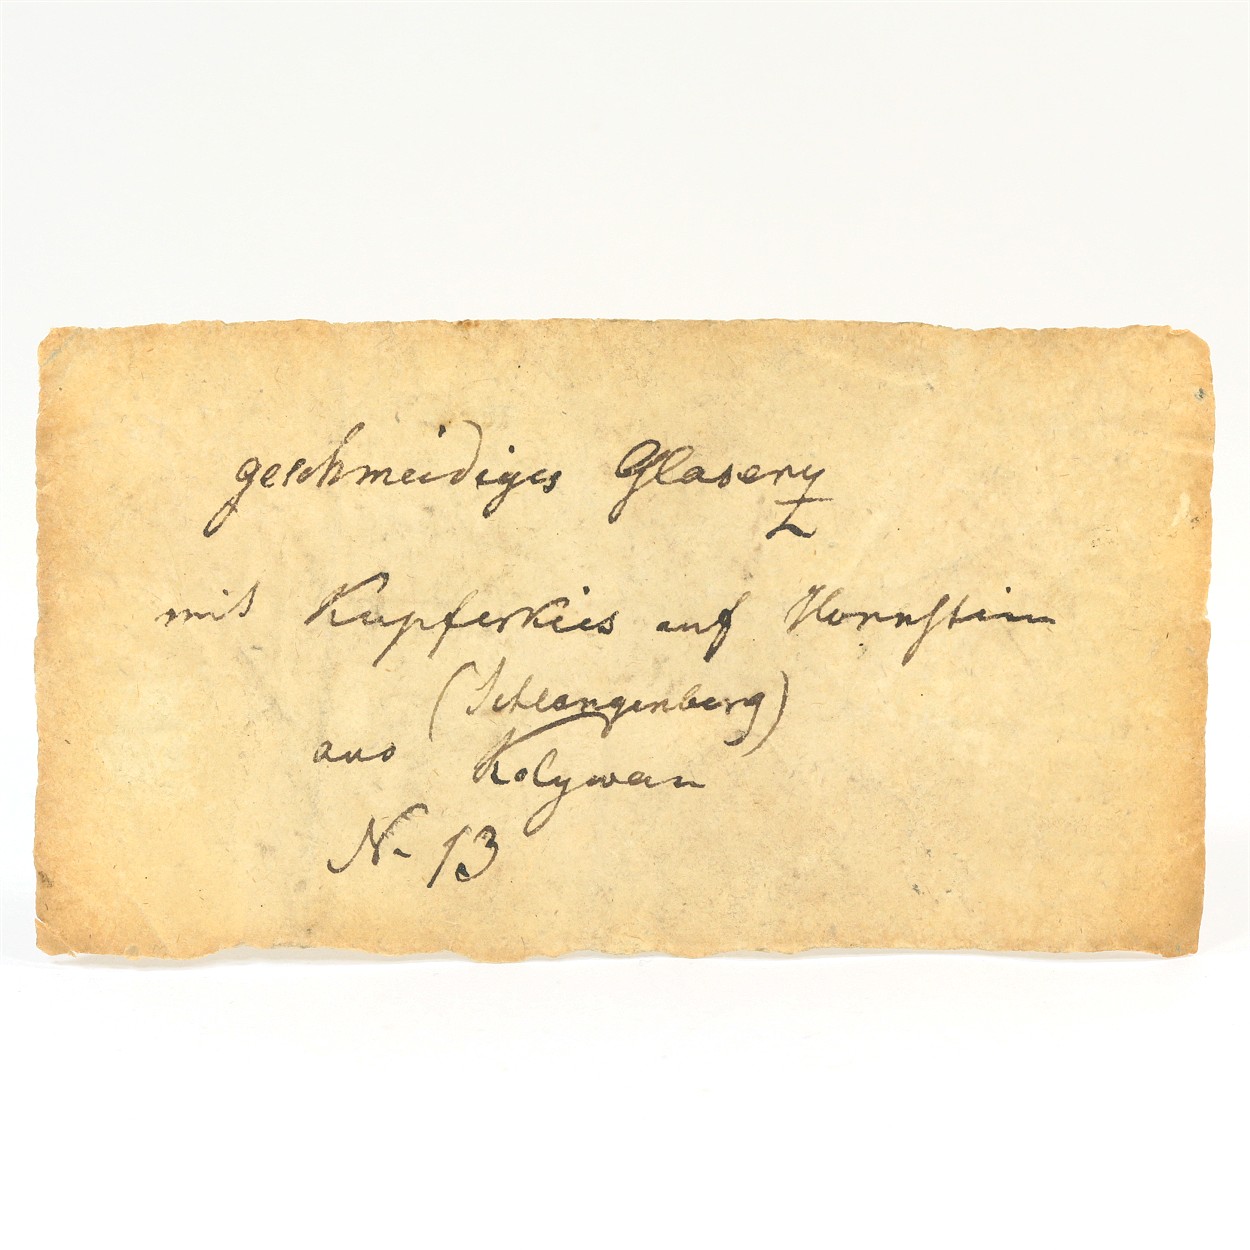 geschmeidiges Glaserz
mit Kupferkies auf Hornstein
(Schlangenberg)
aus Kolywan
N- 13